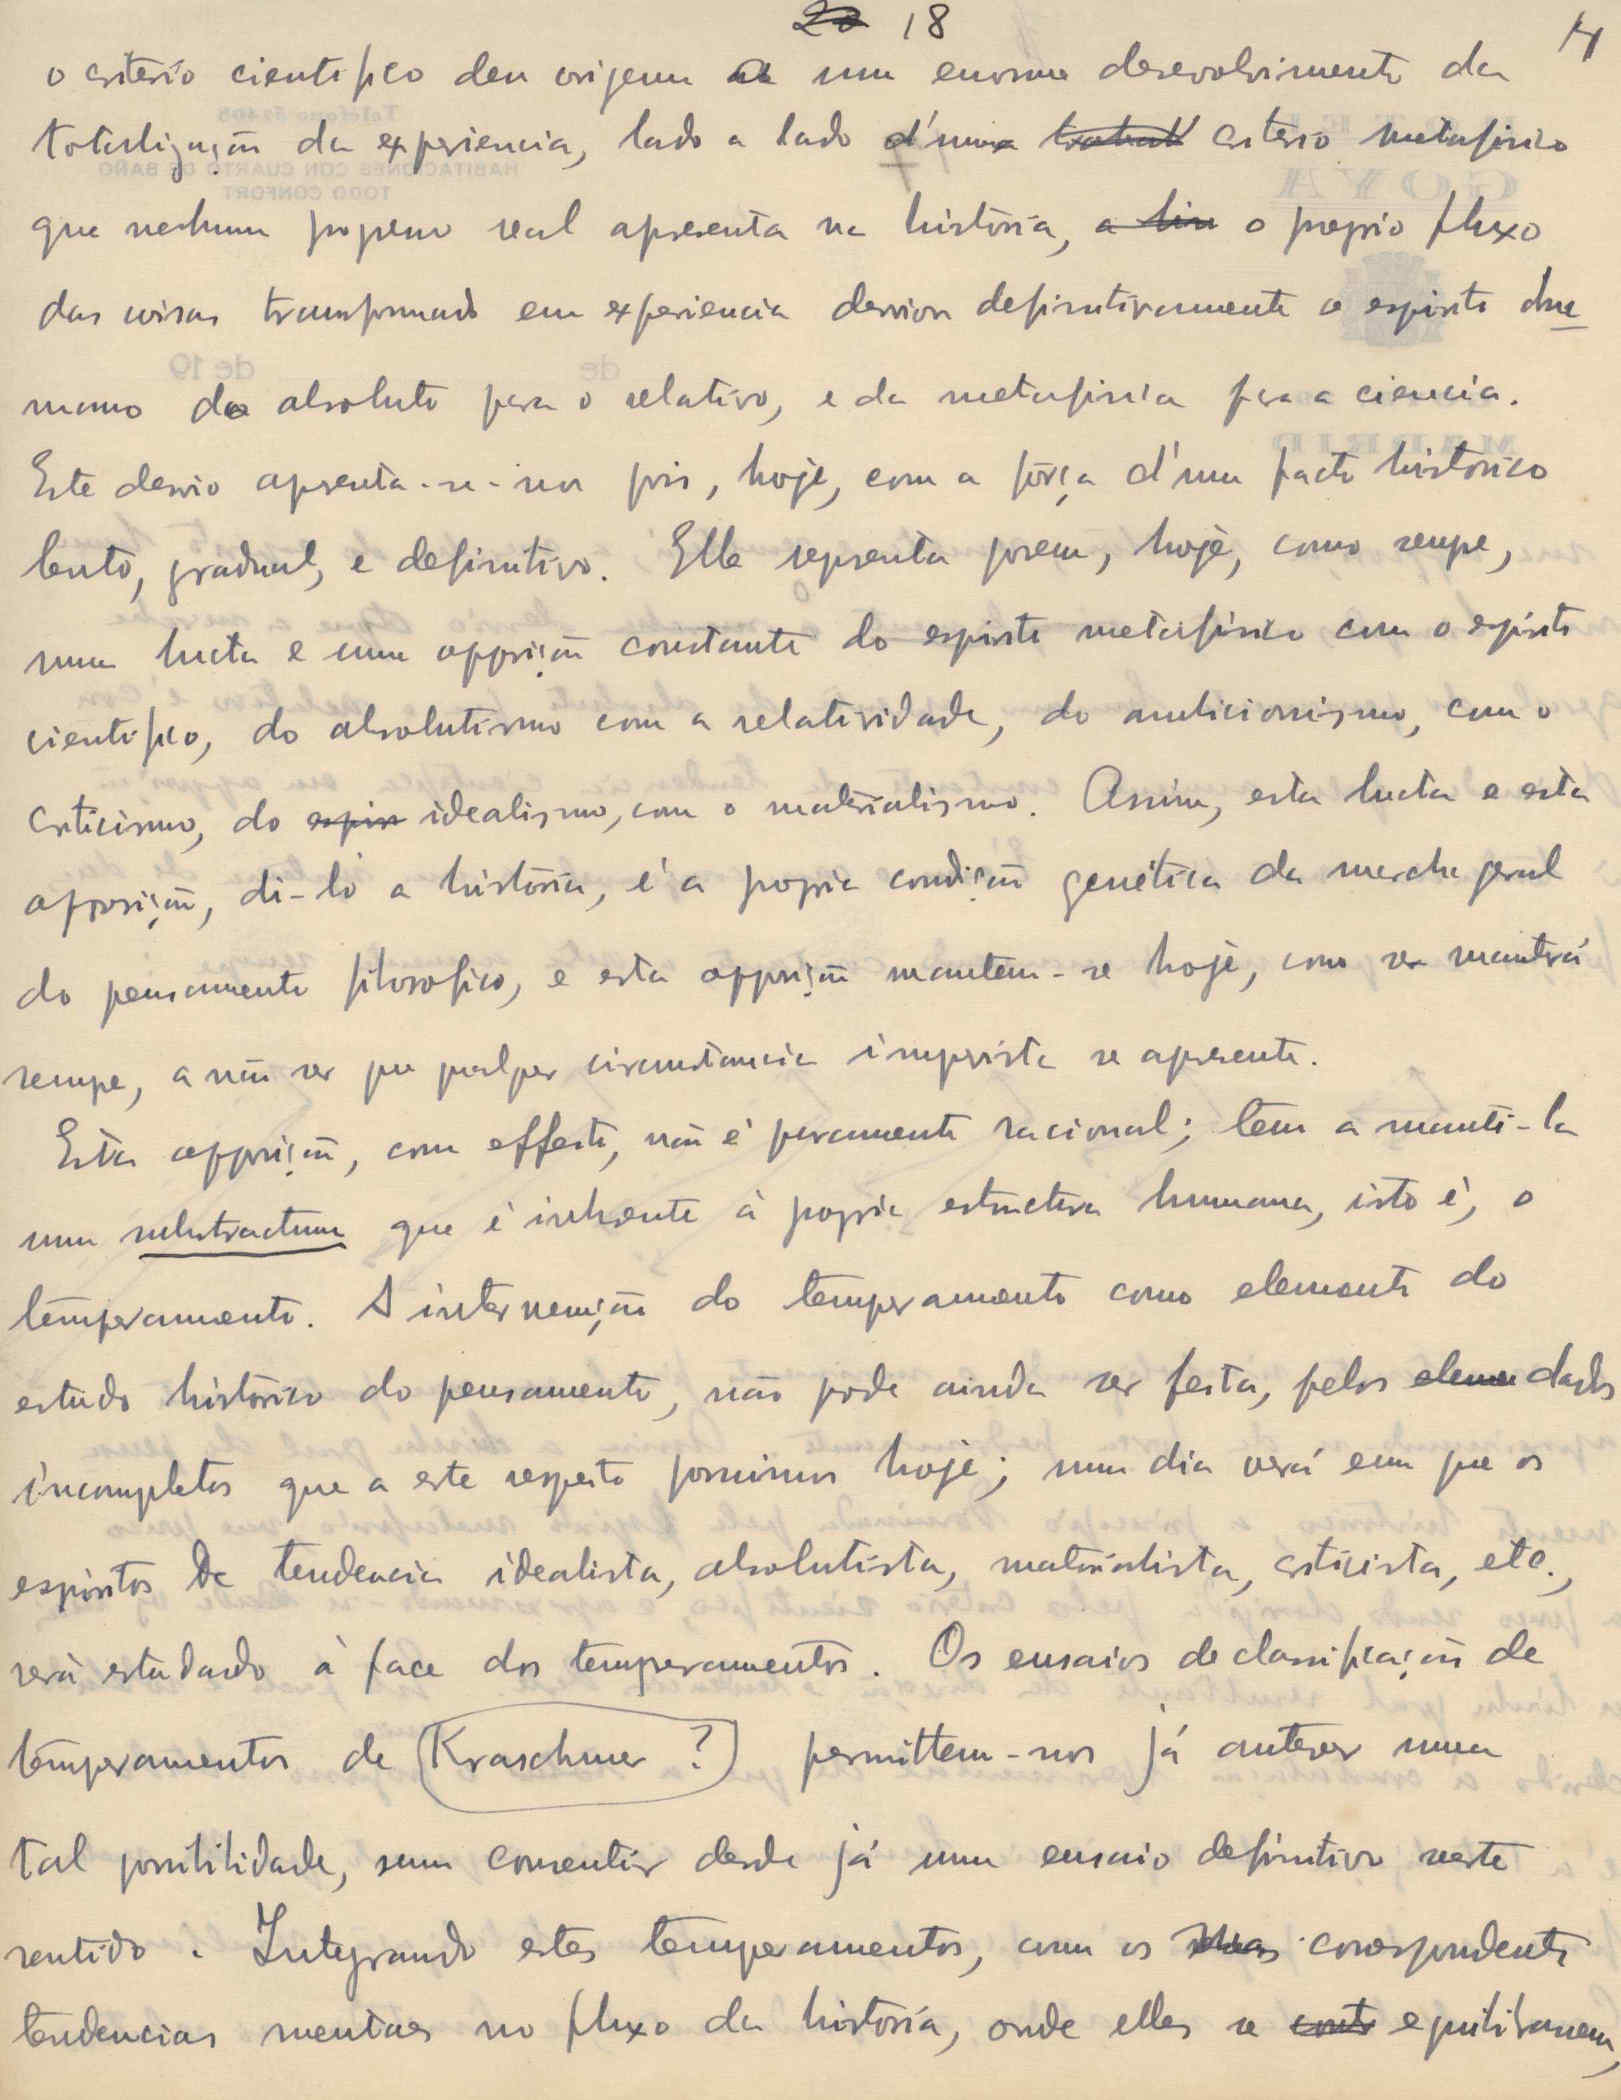 20 18 14
o criterio cientifico deu origem a um enorme desevolvimento da
totalização da experiencia, lado a lado d'um criterio metafisico
que nenhum progresso real apresenta na história, o proprio fluxo
das coisas transformado em experiencia desviou definitivamente o espirito hu
mano do absoluto para o relativo, e da metafisica para a ciencia.
Este desvio apresenta-se-nos pois, hoje, com a fôrça d'um facto historico
lento, gradual, e definitivo. Elle representa porem, hoje, como sempre,
uma lucta e uma opposição constante do espirito metafisico com o espirito
cientifico, do absolutismo com a relatividade, do com o
criticismo, do espir idealismo, com o materialismo. Assim, esta lucta e esta
opposição, di-lo a história, é a propria condição genética da marcha geral
do pensamento filosofico, e esta opposição mantem-se hoje, como se manterá
sempre, a não ser que qualquer circumstancia imprevista se apresente.
Esta opposição, com effeito, não é puramente racional; tem a mante-la
um substractum que é inherente á propria estructura humana, isto é, o
temperamento. A intervenção do temperamento como elemento do
estudo histórico do pensamento, não pode ainda ser feita, pelos eleme dados
incompletos que a este respeito possuimos hoje; um dia verá em que os
espiritos de tendencia idealista, absolutista, materialista, criticista, etc.,
será estudado á face dos temperamentos. Os ensaios de classificação de
temperamentos de (Kraschmer ?) permittem-nos já antever uma
tal possibilidade, sem consentir desde já um ensaio definitivo neste
sentido. Integrando estes temperamentos, com os suas correspondente
tendencias mentaes no fluxo da história, onde elles se contr equilibraram,